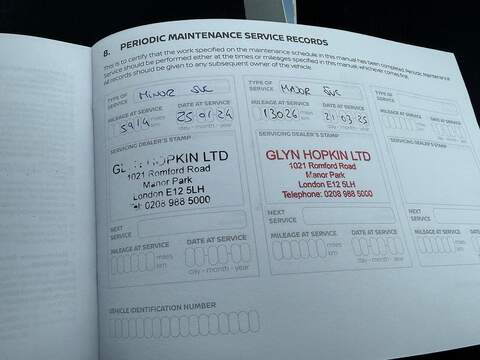 8. PERIODIC MAINTENANCE SERVICE RECORDS
This is to certify that the work specified on the maintenance schedule in this manual has been completed. Periodic Maintenance
Service should be performed either at the times or mileages specified in this manual, whichever comes first.
All records should be given to any subsequent owner of the vehicle.
TYPE OF SERVICE MINOR SVC
MILEAGE AT SERVICE DATE AT SERVICE
5914 miles km 25.01.24
day - month - year
SERVICING DEALER'S STAMP
GLYN HOPKIN LTD
1021 Romford Road
Manor Park
London E12 5LH
Tel: 0208 988 5000
NEXT SERVICE
MILEAGE AT SERVICE DATE AT SERVICE
miles km
day - month - year
TYPE OF SERVICE MAJOR SVC
MILEAGE AT SERVICE DATE AT SERVICE
13024 miles km 21.03.25
day - month - year
SERVICING DEALER'S STAMP
GLYN HOPKIN LTD
1021 Romford Road
Manor Park
London E12 5LH
Telephone: 0208 988 5000
NEXT SERVICE
MILEAGE AT SERVICE DATE AT SERVICE
miles km
day - month - year
TYPE OF SERVICE
MILEAGE AT SERVICE
miles km
SERVICING DEALER'S
NEXT SERVICE
MILEAGE AT SERVICE
miles km
VEHICLE IDENTIFICATION NUMBER